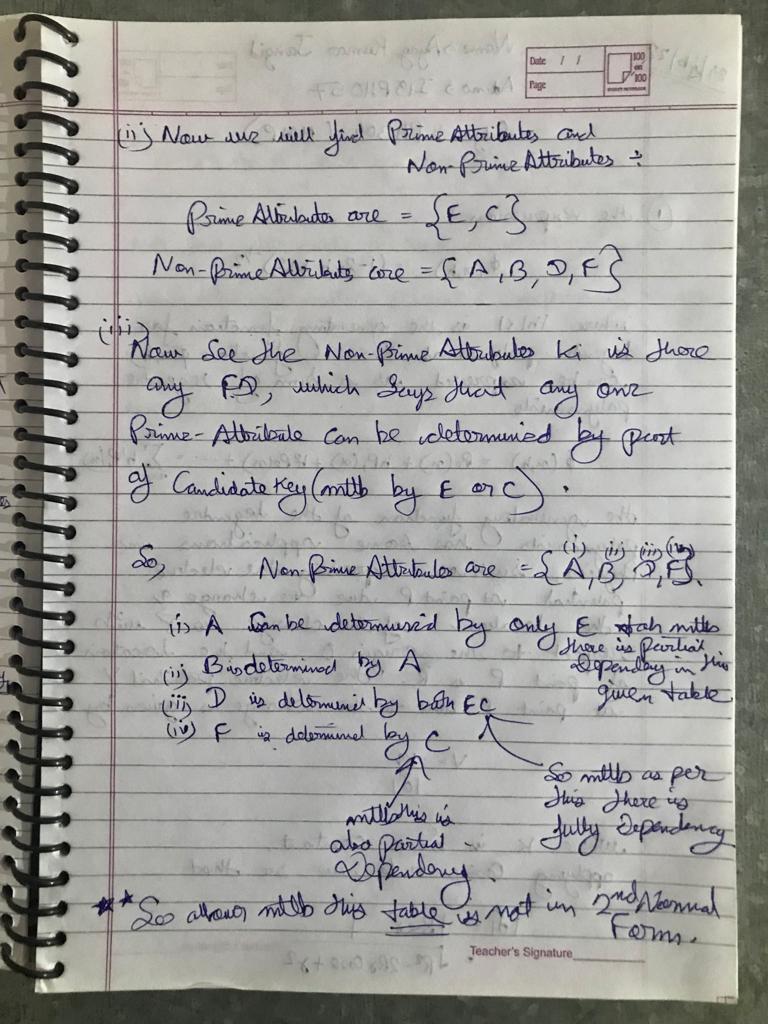 Date / /
Page
100 on 100
(ii) Now we will find Prime Attributes and
Non-Prime Attributes ÷
Prime Attributes are = {E, C}
Non-Prime Attributes are = { A, B, D, F}
(iii)
Now See the Non-Prime Attributes ki is there
any FD, which says that any one
Prime-Attribute can be determined by part
of Candidate Key (mtlb by E or C).
(i) (ii) (iii) (iv)
So, Non-Prime Attributes are = { A, B, D, F}.
(i) A can be determined by only E mtlb
there is partial
Dependency in this
given table
(ii) B is determined by A
(iii) D is determined by both EC
(iv) F is determined by C
So mtlb as per
this there is
fully Dependency
mtlb this is
also partial
Dependency.
** So mtlb this table is not in 2nd Normal
Form.
Teacher's Signature